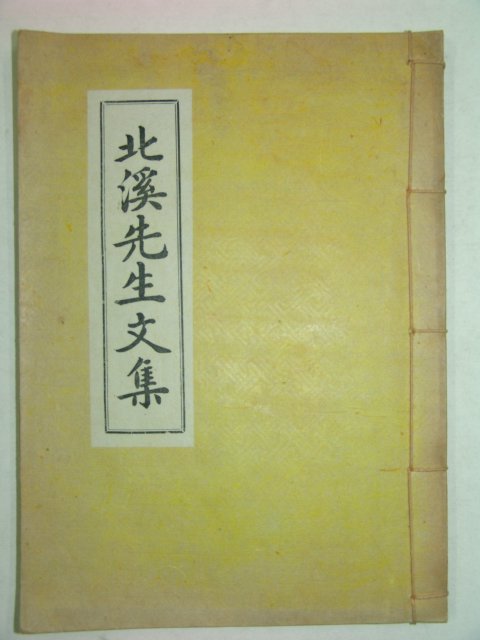 北溪先生文集